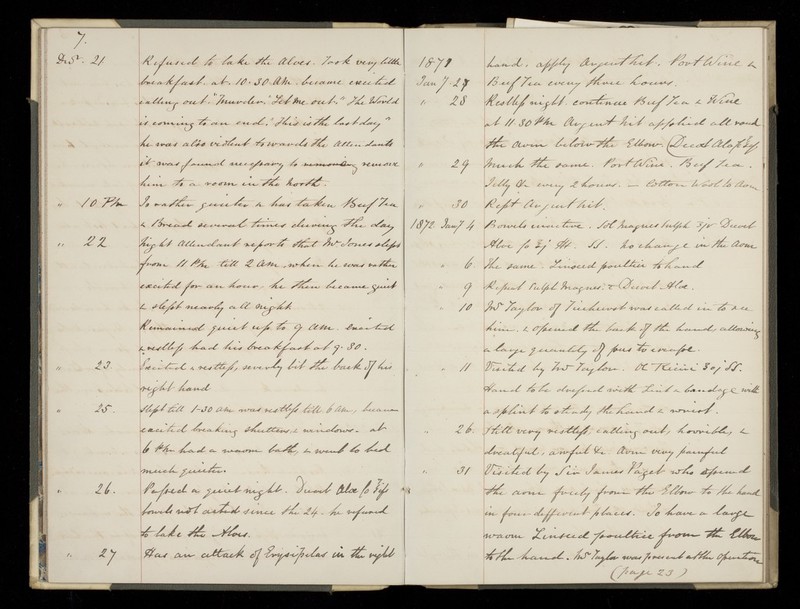 7.
Decr. 21 Refused to take the Aloes. Took very little
breakfast. at. 10.30 AM. became excited
calling out. "Murder." "Let me out." "The World
is coming to an end." "This is the last day"
he was also violent towards the Attendants
it was found necessary to remove
him to a room in the North.
" 10 PM Is rather quieter & has taken Beef Tea
& Bread several times during the day
" 22 Night Attendant reports that Mr Jones slept
from 11 PM. till 2 AM. when he was rather
excited for an hour. he then became quiet
& slept nearly all night
Remained quiet up to 9 AM. excited
& restless had his breakfast at 9.30.
" 23 Excited & restless, severely bit the back of his
right hand
" 25. Slept till 1-30 AM was restless till 6 AM, became
excited breaking shutters & windows. at
6 PM had a warm bath, & went to bed
much quieter.
" 26. Passed a quiet night. Decoct Aloe Co
bowels not acted since the 24. he refused
to take the Aloes.
" 27 Has an attack of Erysipelas in the right
187 hand. apply Argent Nit. Port Wine &
Jany 27 Beef Tea every three hours.
" 28 Restless night. continue Beef Tea & Wine
at 11.30 PM Argent Nit applied all round
the arm below the Elbow. (Decoct Aloe
" 29 Much the same. Port Wine. Beef Tea.
Jelly &c every 2 hours. — Cotton Wool to Arm
" 30 Rept Argent Nit.
1872 Jany 4 Bowels inactive. Sol Magnes Sulph Decoct
Aloe Co St. No change in the Arm
" 6 The same. Linseed poultice to hand
" 9 Repeat Sulph Magnes: & Decoct-Aloe.
" 10 Mr Taylor of Ticehurst was called in to see
him. & opened the back of the hand allowing
a large quantity of pus to escape.
" 11 Visited by Mr Taylor. Ol Ricini St.
Hand to be dressed with Lint & bandage with
a splint to steady the hand & wrist.
" 26. Still very restless, calling out, horrible, &
dreadful, awful &c Arm very painful
" 31 Visited by Sir James Paget who opened
the arm freely from the Elbow to the hand
in four different places. To have a large
warm Linseed poultice from the Elbow
to the hand. Mr Taylor was present at the operation
(page 23)